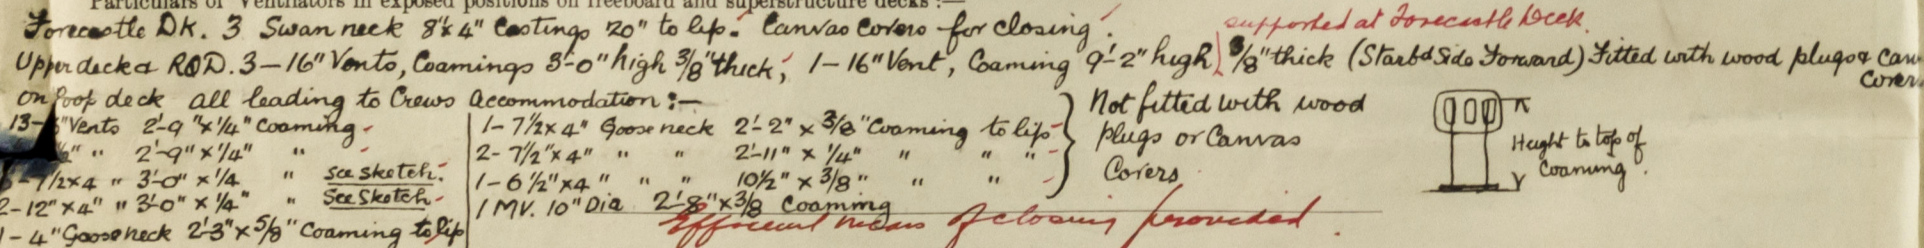 Particulars of Ventilators in exposed positions on freeboard and superstructure decks :—
supported at Forecastle Deck.
Forecastle DK. 3 Swan neck 8"x 4" Castings 20" to lip. Canvas covers for closing.
Upper deck ROD. 3 – 16" Vents, Coamings 3'-0" high 3/8" thick; 1 – 16" Vent, Coaming 9'-2" high 3/8" thick (Starbd Side Forward) Fitted with wood plugs & Can
Covers
on Poop deck all leading to Crews Accommodation :—
13- " Vents 2'-9" x 1/4" Coaming
" " 2'-9" x 1/4" "
-7 1/2 x 4 " 3'-0" x 1/4 " see sketch.
2-12" x 4" " 3'-0" x 1/4" " See Sketch
1 – 4" Goose neck 2'-3" x 5/8" Coaming to lip
1 – 7 1/2 x 4" Goose neck 2'-2" x 3/8" Coaming to lip
2 - 7 1/2" x 4" " " 2'-11" x 1/4" " " "
1 – 6 1/2" x 4" " " 10 1/2" x 3/8" " "
1 MV. 10" Dia 2'-8" x 3/8 Coaming
Not fitted with wood
plugs or Canvas
Covers
Height to top of
Coaming.
Efficient means of closing provided.